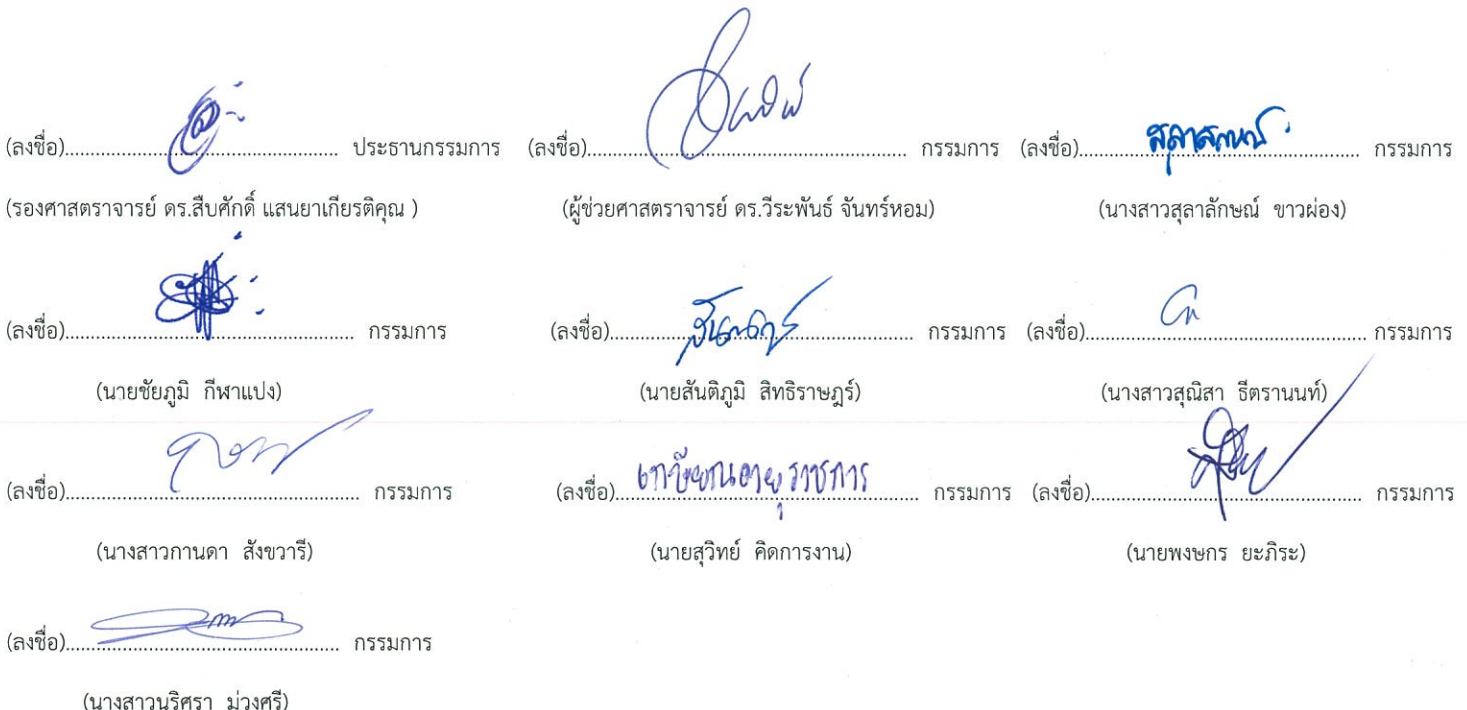 (ลงชื่อ)........................................ ประธานกรรมการ (ลงชื่อ)........................................ กรรมการ (ลงชื่อ) สุลาลักษณ์ ........................................ กรรมการ
(รองศาสตราจารย์ ดร.สืบศักดิ์ แสนยาเกียรติคุณ ) (ผู้ช่วยศาสตราจารย์ ดร.วีระพันธ์ จันทร์หอม) (นางสาวสุลาลักษณ์ ขาวผ่อง)
(ลงชื่อ)........................................ กรรมการ (ลงชื่อ)........................................ กรรมการ (ลงชื่อ)........................................ กรรมการ
(นายชัยภูมิ กีฬาแปง) (นายสันติภูมิ สิทธิราษฎร์) (นางสาวสุณิสา ธีตรานนท์)
(ลงชื่อ)........................................ กรรมการ (ลงชื่อ) เกษียณอายุราชการ ........................................ กรรมการ (ลงชื่อ)........................................ กรรมการ
(นางสาวกานดา สังขวารี) (นายสุวิทย์ คิดการงาน) (นายพงษกร ยะภิระ)
(ลงชื่อ)........................................ กรรมการ
(นางสาวนริศรา ม่วงศรี)